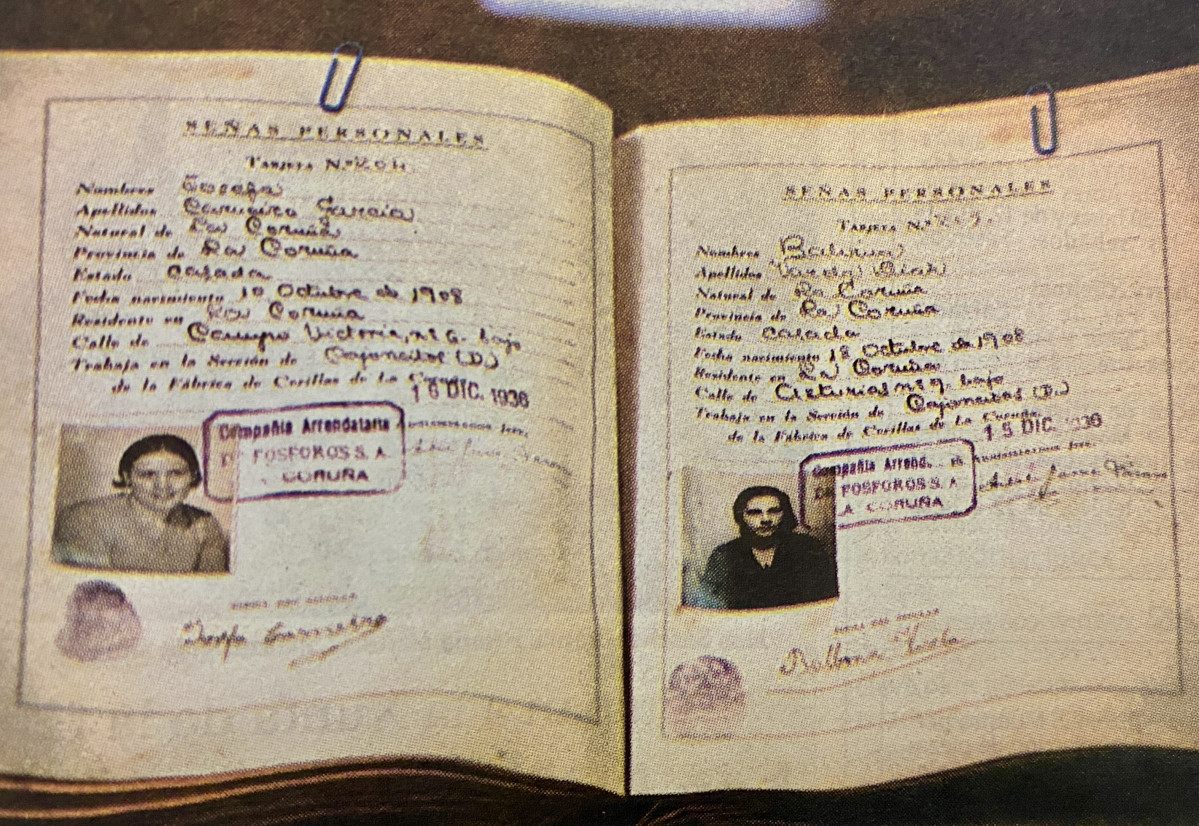 SEÑAS PERSONALES
TARJETA N.º 204
Nombres Josefa
Apellidos Carneiro García
Natural de La Coruña
Provincia de La Coruña
Estado casada
Fecha nacimiento 10 Octubre de 1908
Residente en La Coruña
Calle de Campo Victoria, nº 6. bajo
Trabaja en la Sección de Cajoncitos (D.)
de la Fábrica de Cerillas de La Coruña
16 DIC. 1936
Compañía Arrendataria
DE FOSFOROS S. A.
CORUÑA
ADMINISTRADOR JEFE,
FIRMA DEL OBRERO
Josefa Carneiro
SEÑAS PERSONALES
TARJETA N.º
Nombres Balbina
Apellidos Varela
Natural de La Coruña
Provincia de La Coruña
Estado casada
Fecha nacimiento 18 Octubre de 1908
Residente en La Coruña
Calle de Asturias nº 9. bajo
Trabaja en la Sección de Cajoncitos (D.)
de la Fábrica de Cerillas de La Coruña
15 DIC. 1936
Compañía Arrend.
DE FOSFOROS S. A
A CORUÑA
ADMINISTRADOR JEFE,
FIRMA DEL OBRERO
Balbina Varela